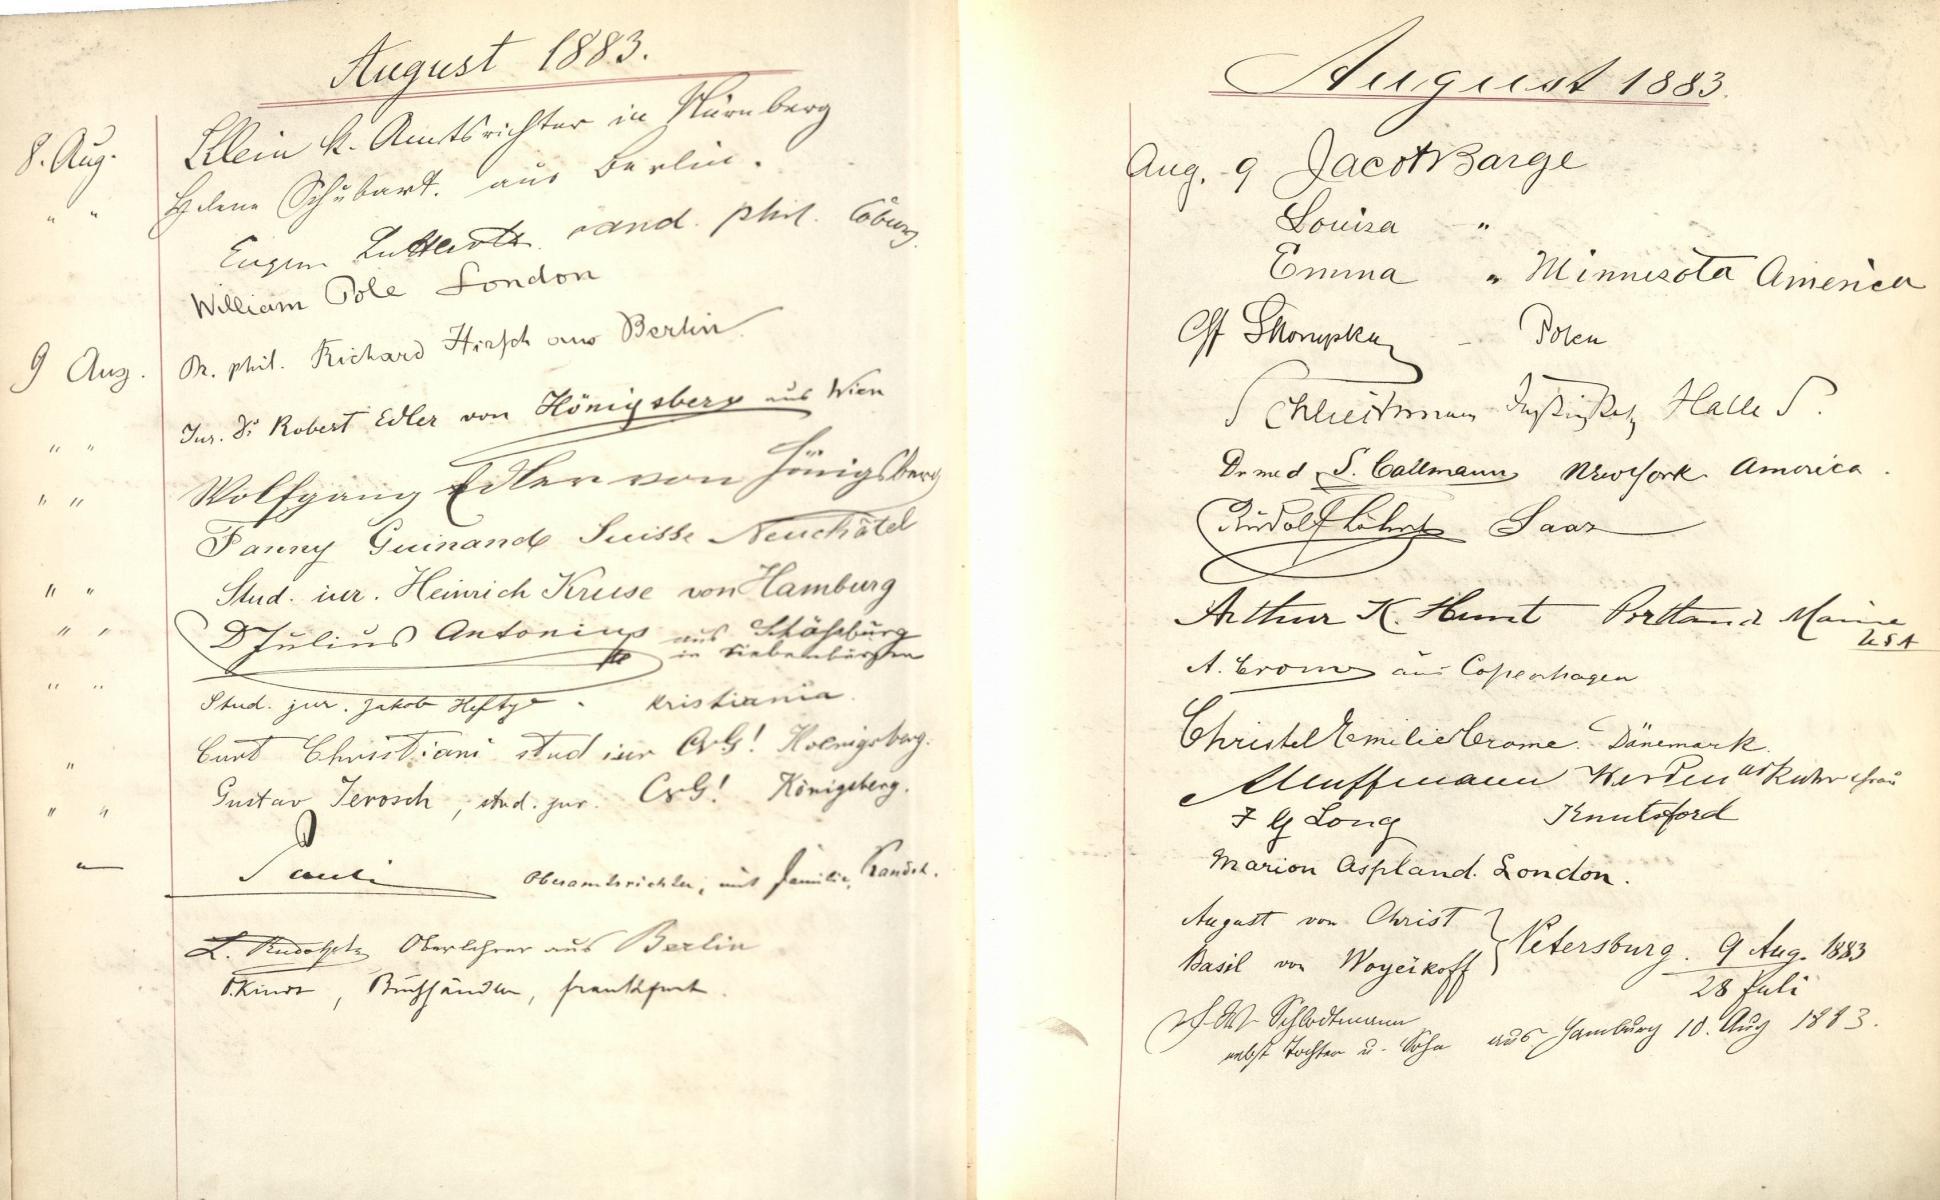 August 1883.
8. Aug. Klein k. Amtsrichter in Nürnberg
" " Helene Schubart. aus Berlin.
Eugen cand. phil. Coburg.
William Pole London
9 Aug. Dr. phil. Richard Hirsch aus Berlin.
Jur. Dr Robert Edler von Hönigsberg aus Wien
" "
" " Wolfgang Edler von Hönigsberg
Fanny Guinand Suisse Neuchâtel
" " Stud. iur. Heinrich Kruse von Hamburg
" " Dr Julius Antonius aus Schäßburg
in Siebenbürgen
" " Stud. jur. Jakob Heftye. Kristiania.
" Curt Christiani stud iur Koenigsberg.
" " Gustav Jerosch, stud. jur. Königsberg.
" Pauli Oberamtsrichter, mit Familie,
L. Oberlehrer aus Berlin
Buchhändler, Frankfurt.
August 1883.
Aug. 9 Jacob Barge
Louisa "
Emma " Minnesota America
Skorupka - Polen
Halle S.
Dr med S. Callmann New York America.
Rudolf Saaz
Arthur K. Hunt Portland Maine
USA
A. Crome aus Copenhagen
Christel Emilie Crome. Dänemark.
Werden a/d Ruhr u Frau
F G Long Knutsford
Marion Aspland. London.
August von Christ
Basil von Woyeikoff } Petersburg. 9 Aug. 1883
28 Juli
Schlodtmann
nebst Tochter u. Sohn aus Hamburg 10. Aug 1883.